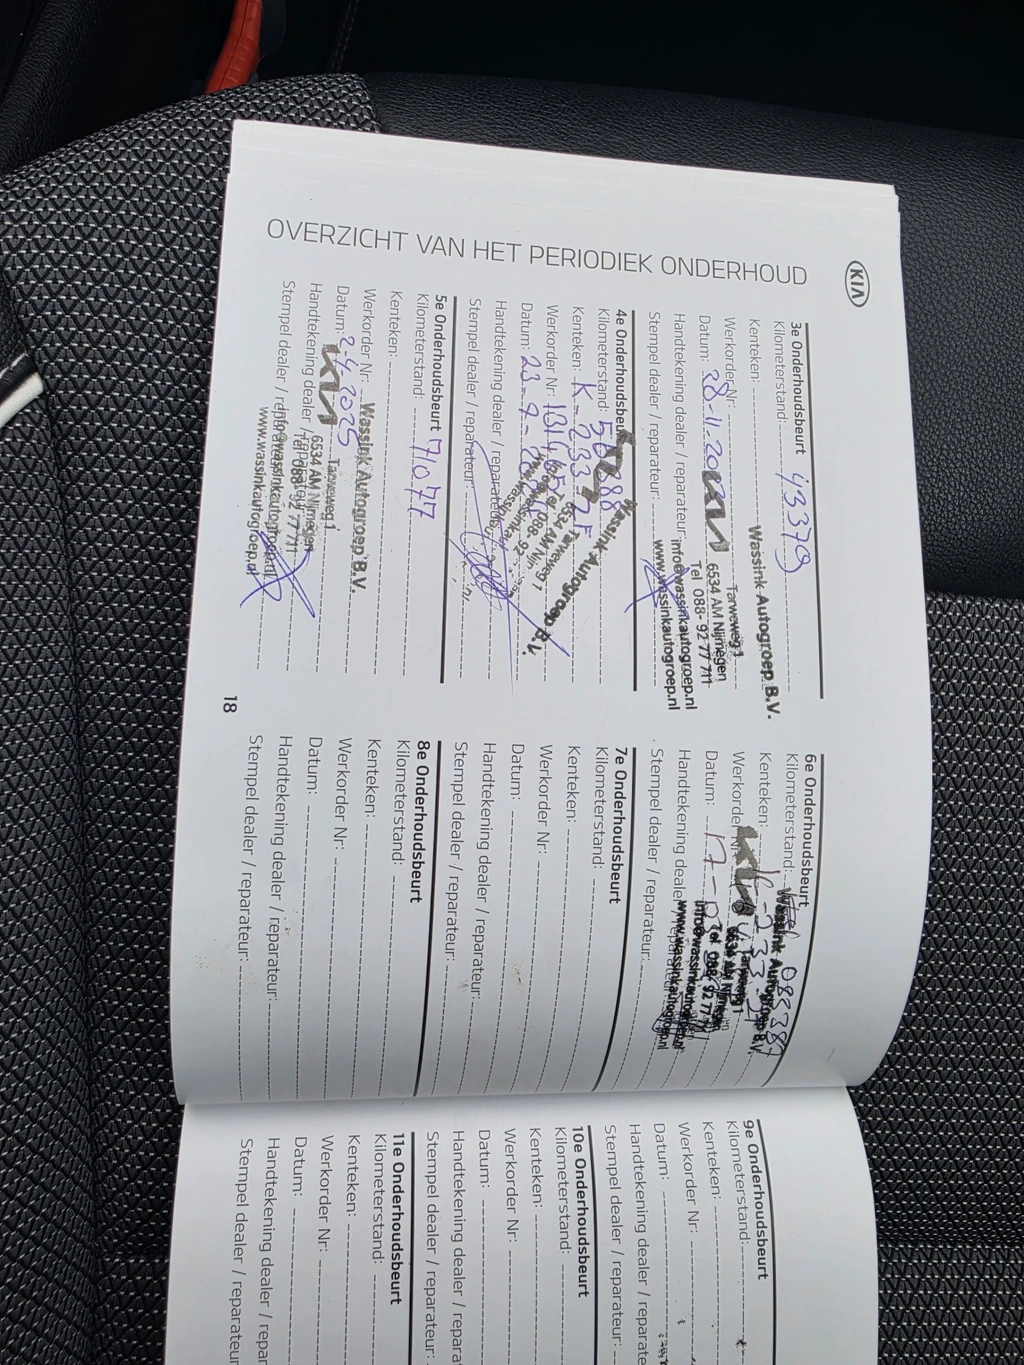 KIA
OVERZICHT VAN HET PERIODIEK ONDERHOUD
3e Onderhoudsbeurt
Kilometerstand: 43379
Kenteken:
Werkorder Nr:
Datum: 28-11-20
Handtekening dealer / reparateur:
Stempel dealer / reparateur:
Wassink Autogroep B.V.
Tarweweg 1
6534 AM Nijmegen
Tel 088- 92 77 711
info@wassinkautogroep.nl
www.wassinkautogroep.nl
4e Onderhoudsbeurt
Kilometerstand:
Kenteken: K-233-
Werkorder Nr:
Datum: 23-9-
Handtekening dealer / reparateur:
Stempel dealer / reparateur:
Wassink Autogroep B.V.
Tarweweg 1
5e Onderhoudsbeurt
Kilometerstand: 71077
Kenteken:
Werkorder Nr:
Datum: 2-4-2025
Handtekening dealer / reparateur:
Stempel dealer / reparateur:
Wassink Autogroep B.V.
Tarweweg 1
6534 AM Nijmegen
Tel 088- 92 77711
info@wassinkautogroep.nl
www.wassinkautogroep.nl
6e Onderhoudsbeurt
Kilometerstand:
Kenteken:
Werkorder Nr:
Datum: 17-
Handtekening dealer / reparateur:
Stempel dealer / reparateur:
Wassink Autogroep B.V.
Tarweweg 1
6534 AM Nijmegen
Tel 088- 92 77 711
info@wassinkautogroep.nl
www.wassinkautogroep.nl
7e Onderhoudsbeurt
Kilometerstand:
Kenteken:
Werkorder Nr:
Datum:
Handtekening dealer / reparateur:
Stempel dealer / reparateur:
8e Onderhoudsbeurt
Kilometerstand:
Kenteken:
Werkorder Nr:
Datum:
Handtekening dealer / reparateur:
Stempel dealer / reparateur:
18
9e Onderhoudsbeurt
Kilometerstand:
Kenteken:
Werkorder Nr:
Datum:
Handtekening dealer /
Stempel dealer / reparateur:
10e Onderhoudsbeurt
Kilometerstand:
Kenteken:
Werkorder Nr:
Datum:
Handtekening dealer /
Stempel dealer / reparateur:
11e Onderhoudsbeurt
Kilometerstand:
Kenteken:
Werkorder Nr:
Datum:
Handtekening dealer /
Stempel dealer / reparateur